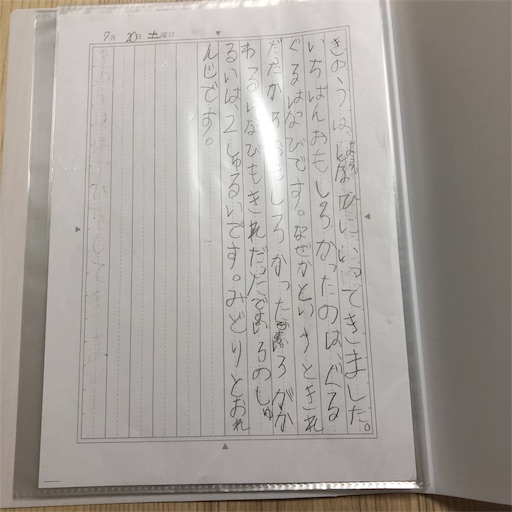 7月 20日 土曜日
きのうは、はなびにいってきました。
いちばんおもしろかったのは、ぐる
ぐるはなびです。なぜかというときれ
だたからおもしろかった いろがか
わるはなびもきれだったです。いろのしゅ
るいは、2しゅるいです。みどりとおれ
んじです。